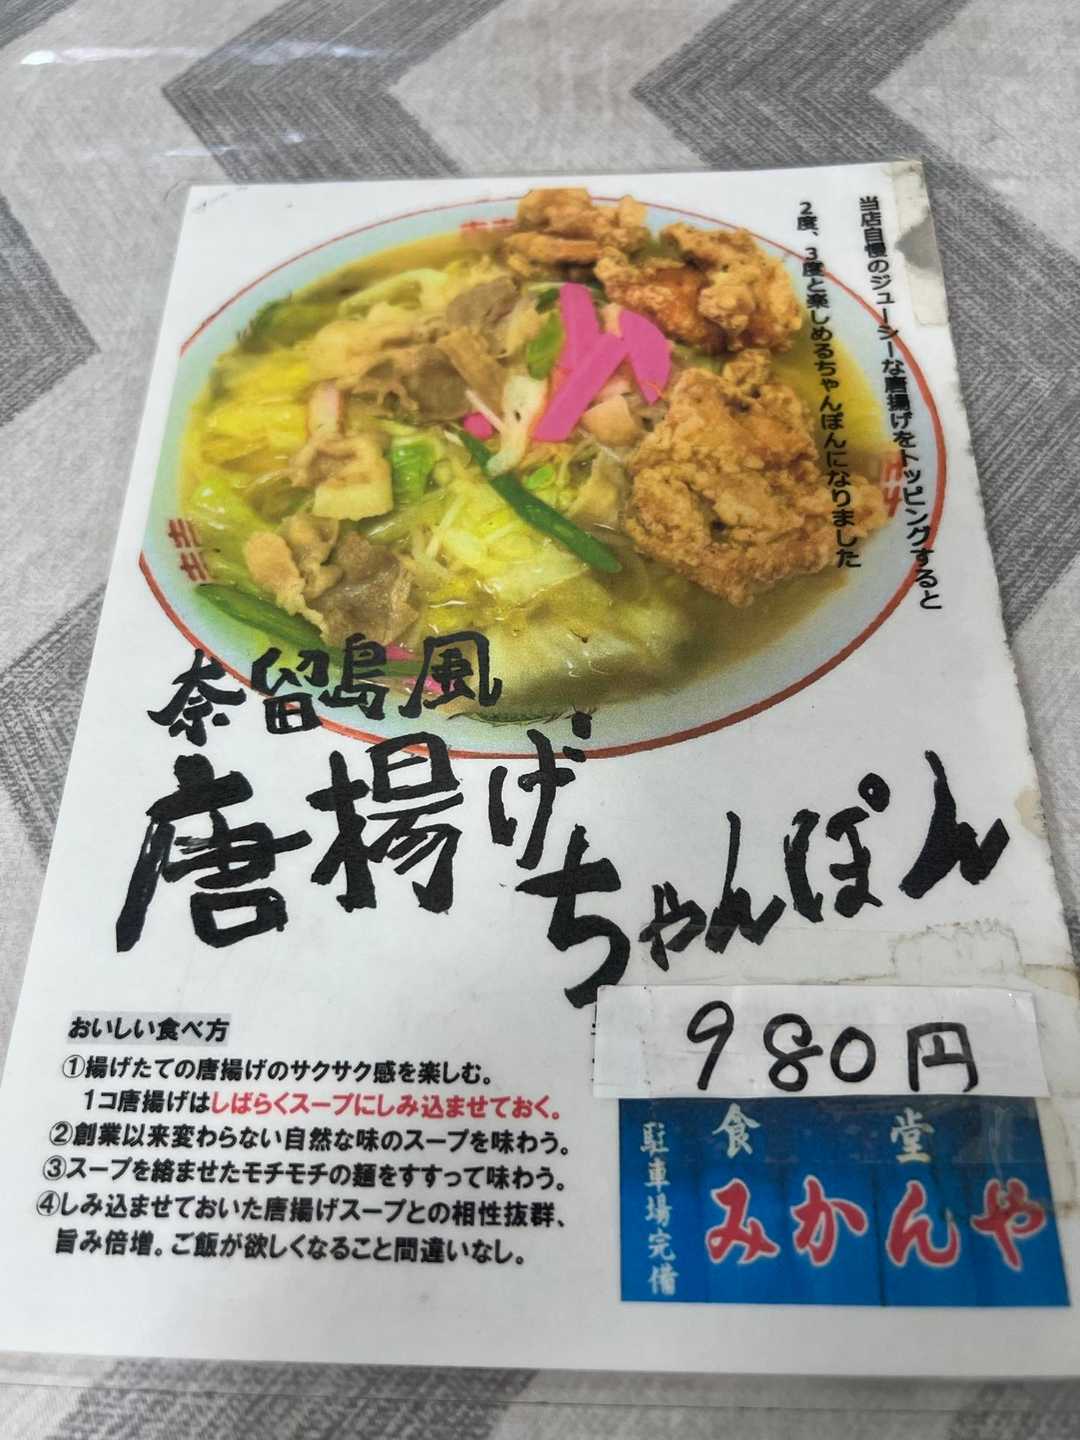 当店自慢のジューシーな唐揚げをトッピングすると
2度、3度と楽しめるちゃんぽんになりました
奈留島風
唐揚げちゃんぽん
980円
おいしい食べ方
①揚げたての唐揚げのサクサク感を楽しむ。
1コ唐揚げはしばらくスープにしみ込ませておく。
②創業以来変わらない自然な味のスープを味わう。
③スープを絡ませたモチモチの麺をすすって味わう。
④しみ込ませておいた唐揚げスープとの相性抜群、
旨み倍増。ご飯が欲しくなること間違いなし。
食堂
みかんや
駐車場完備